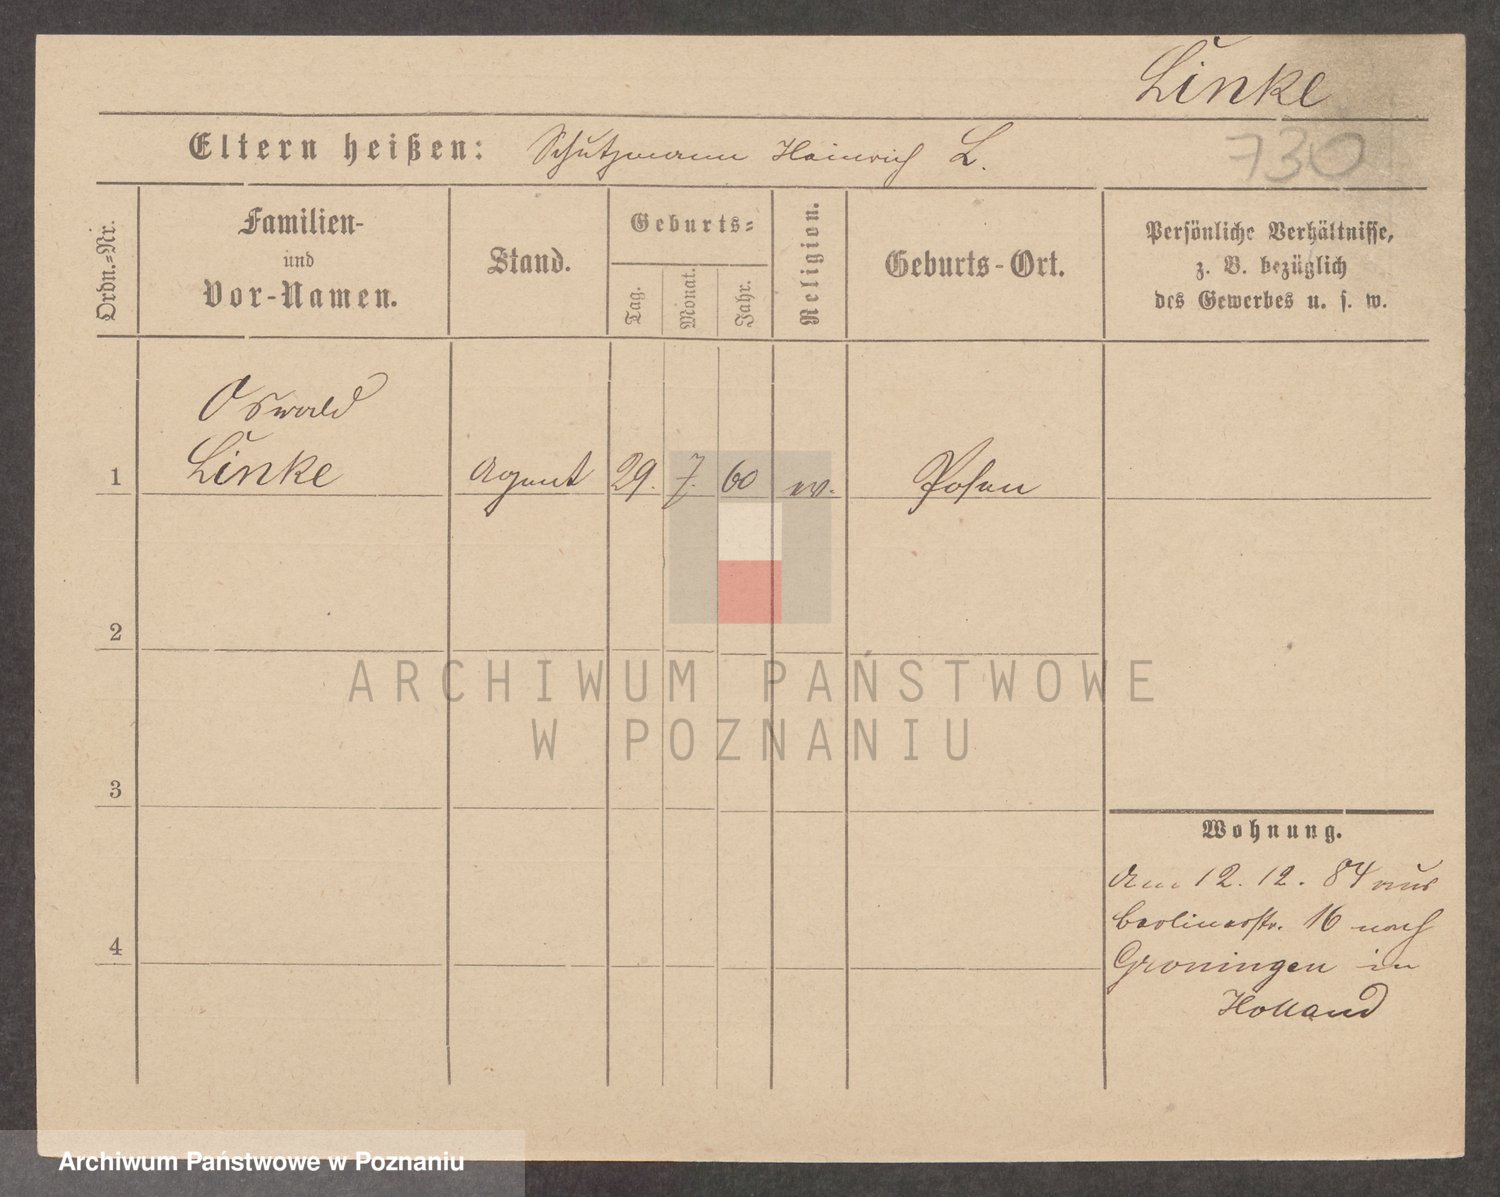 Linke
730
Eltern heißen: Schutzmann Heinrich L.
Ordn.-Nr.
Familien-
und
Vor-Namen.
Stand.
Geburts-
Tag.
Monat.
Jahr.
Religion.
Geburts-Ort.
Persönliche Verhältnisse,
z. B. bezüglich
des Gewerbes u. s. w.
Oswald
1 Linke Agent 29. 7. 60 ev. Posen
2
ARCHIWUM PAŃSTWOWE
W POZNANIU
3
Wohnung.
Am 12. 12. 84 aus
Berlinerstr. 16 nach
4
Groningen in
Holland
Archiwum Państwowe w Poznaniu